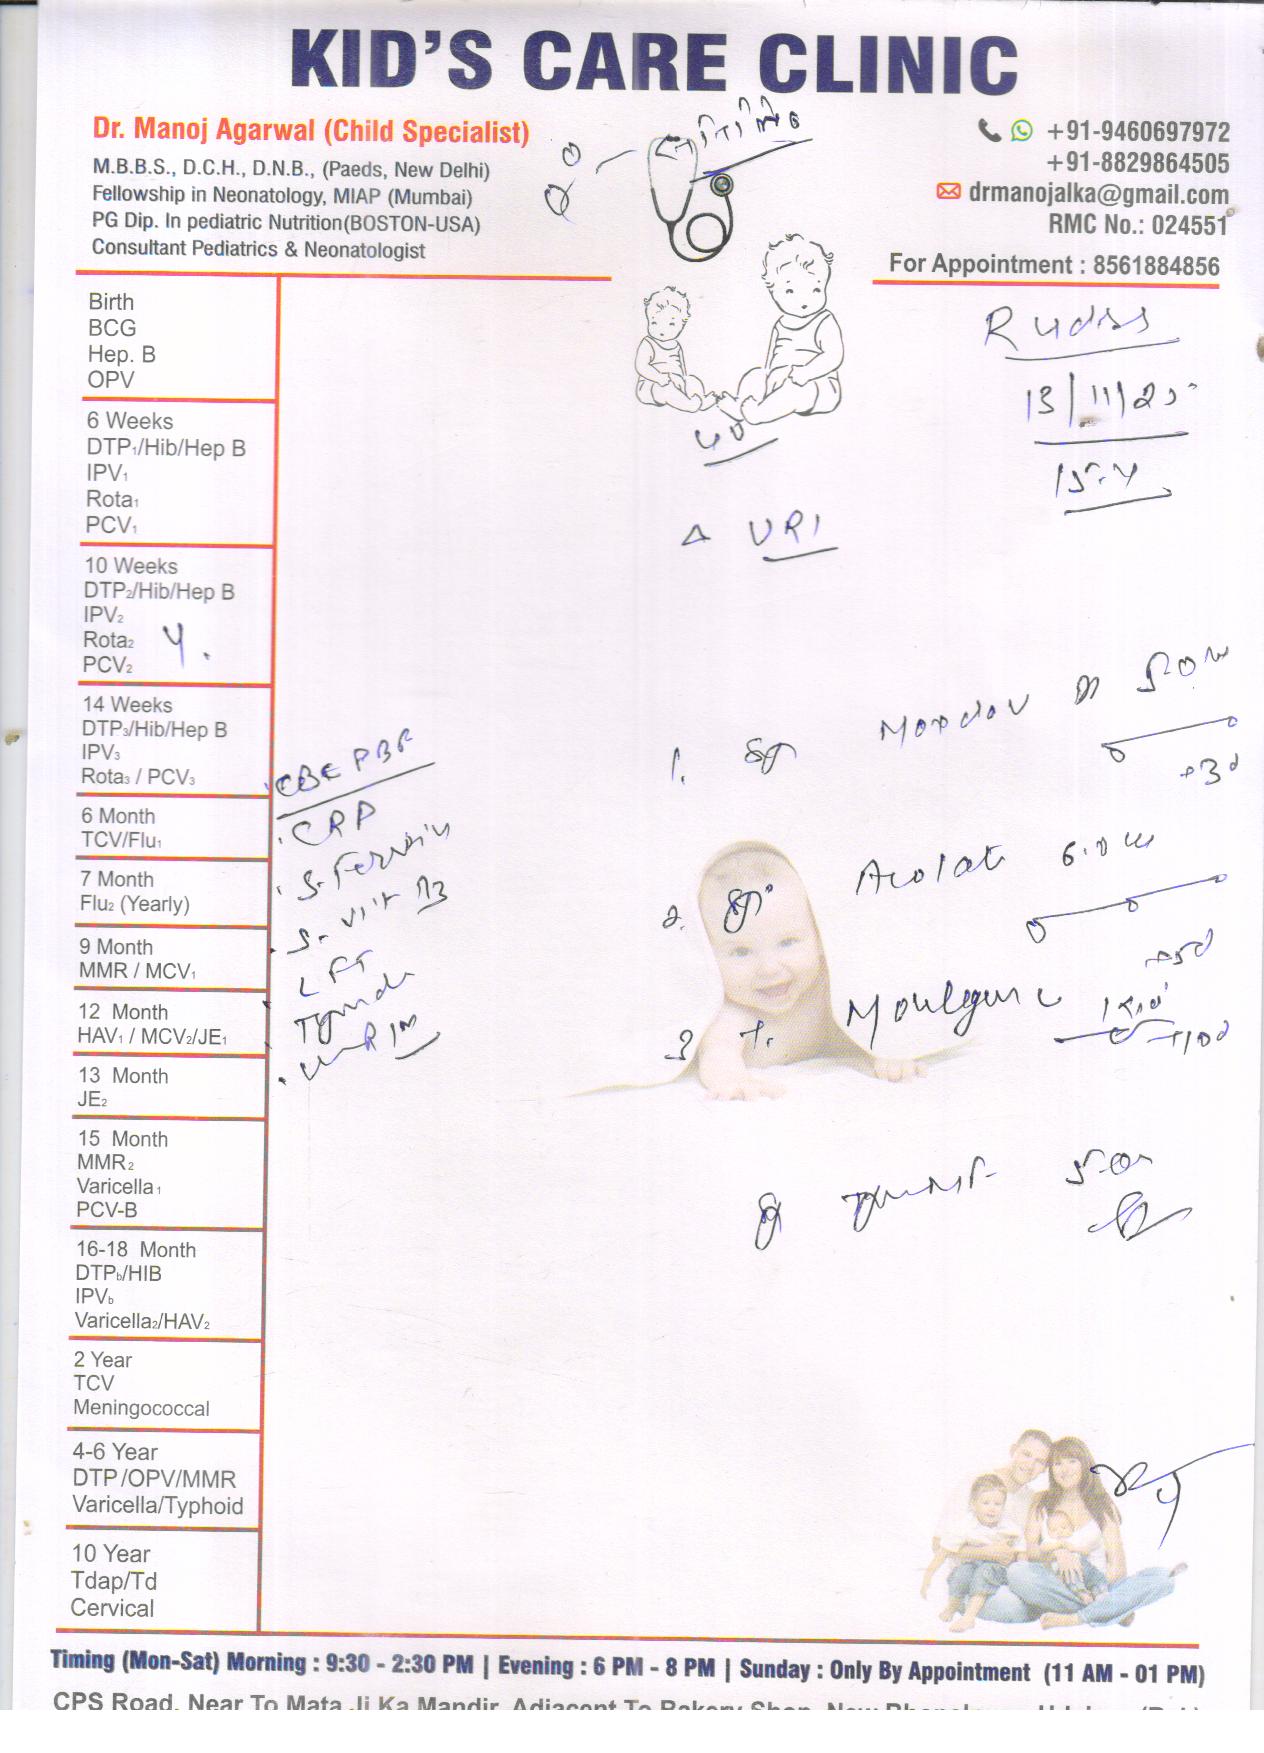 KID'S CARE CLINIC
Dr. Manoj Agarwal (Child Specialist)
M.B.B.S., D.C.H., D.N.B., (Paeds, New Delhi)
Fellowship in Neonatology, MIAP (Mumbai)
PG Dip. In pediatric Nutrition(BOSTON-USA)
Consultant Pediatrics & Neonatologist
+91-9460697972
+91-8829864505
drmanojalka@gmail.com
RMC No.: 024551
For Appointment : 8561884856
13/11/20
15.4
Δ URI
Birth
BCG
Hep. B
OPV
6 Weeks
DTP1/Hib/Hep B
IPV1
Rota1
PCV1
10 Weeks
DTP2/Hib/Hep B
IPV2
Rota2
PCV2
14 Weeks
DTP3/Hib/Hep B
IPV3
Rota3 / PCV3
6 Month
TCV/Flu1
7 Month
Flu2 (Yearly)
9 Month
MMR / MCV1
12 Month
HAV1 / MCV2/JE1
13 Month
JE2
15 Month
MMR2
Varicella1
PCV-B
16-18 Month
DTPb/HIB
IPVb
Varicella2/HAV2
2 Year
TCV
Meningococcal
4-6 Year
DTP/OPV/MMR
Varicella/Typhoid
10 Year
Tdap/Td
Cervical
CBC PBF
CRP
S. Ferritin
S. Vit D3
LFT
1.
2.
3
Timing (Mon-Sat) Morning : 9:30 - 2:30 PM | Evening : 6 PM - 8 PM | Sunday : Only By Appointment (11 AM - 01 PM)
CPS Road, Near To Mata Ji Ka Mandir, Adjacent To Bakery Shop, New